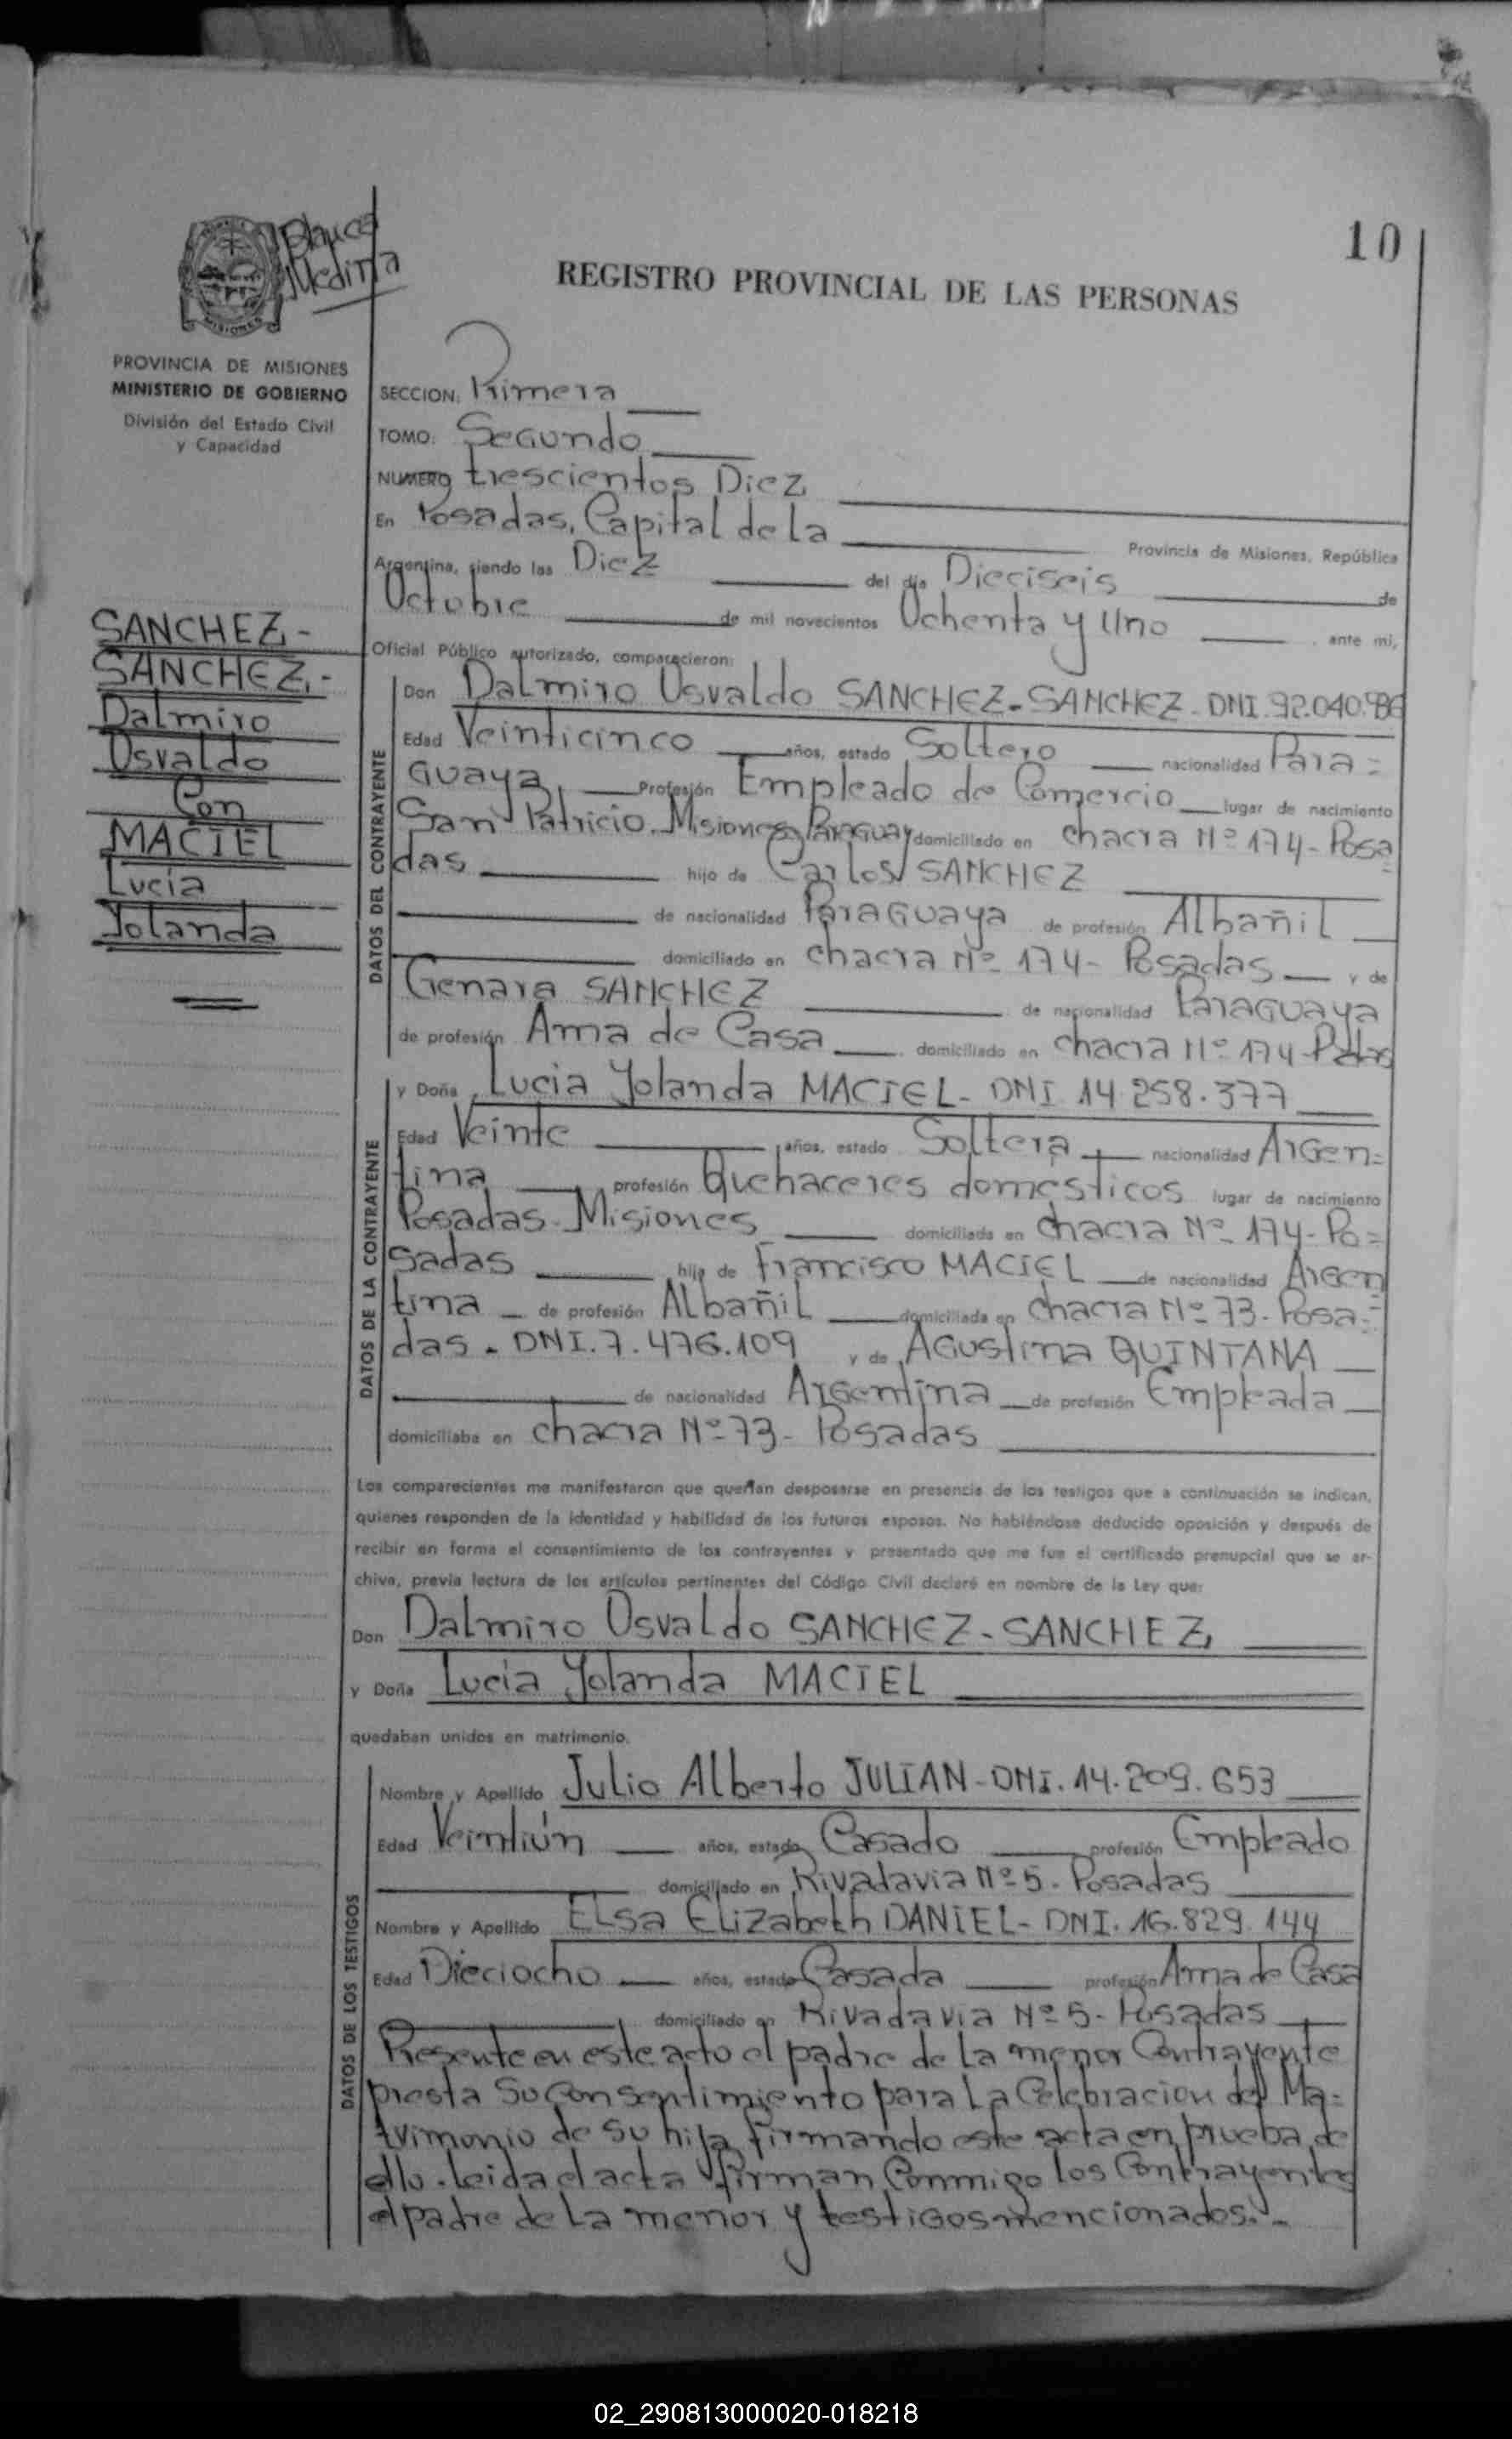 10
Medina
REGISTRO PROVINCIAL DE LAS PERSONAS
MISIONES
PROVINCIA DE MISIONES
MINISTERIO DE GOBIERNO
División del Estado Civil
y Capacidad
SECCION: Primera
TOMO: Segundo
NUMERO trescientos Diez
En Posadas, Capital de la Provincia de Misiones, República
Argentina, siendo las Diez del día Dieciseis de
Octubre de mil novecientos Ochenta y Uno ante mi,
Oficial Público autorizado, comparecieron:
SANCHEZ -
SANCHEZ, -
Dalmiro
Osvaldo
Con
MACIEL
Lucía
Yolanda
DATOS DEL CONTRAYENTE
Don Dalmiro Osvaldo SANCHEZ - SANCHEZ - DNI 92.040.986
Edad Veinticinco años, estado Soltero nacionalidad Para=
Guaya, Profesión Empleado de Comercio lugar de nacimiento
San Patricio Misiones Paraguay domiciliado en chacra Nº 174 - Posa
das hijo de Carlos SANCHEZ
de nacionalidad Paraguaya de profesión Albañil
domiciliado en chacra Nº 174 - Posadas y de
Genara SANCHEZ de nacionalidad Paraguaya
de profesión Ama de Casa domiciliado en chacra Nº 174
DATOS DE LA CONTRAYENTE
y Doña Lucia Yolanda MACIEL - DNI 14.258.377
Edad Veinte años, estado Soltera nacionalidad Argen=
tina profesión Quehaceres domesticos lugar de nacimiento
Posadas - Misiones domiciliada en chacra Nº 174 - Po=
sadas hija de Francisco MACIEL de nacionalidad Argen
tina de profesión Albañil domiciliada en chacra Nº 73 - Posa=
das - DNI. 7.476.109 y de Agustina QUINTANA
de nacionalidad Argentina de profesión Empleada
domiciliaba en chacra Nº 73 - Posadas
Los comparecientes me manifestaron que querían desposarse en presencia de los testigos que a continuación se indican,
quienes responden de la identidad y habilidad de los futuros esposos. No habiéndose deducido oposición y después de
recibir en forma el consentimiento de los contrayentes y presentado que me fue el certificado prenupcial que se ar-
chiva, previa lectura de los artículos pertinentes del Código Civil declaré en nombre de la Ley que:
Don Dalmiro Osvaldo SANCHEZ - SANCHEZ,
y Doña Lucia Yolanda MACIEL
quedaban unidos en matrimonio.
DATOS DE LOS TESTIGOS
Nombre y Apellido Julio Alberto JULIAN - DNI. 14.209.653
Edad Veintiún años, estado Casado profesión Empleado
domiciliado en Rivadavia Nº 5 - Posadas
Nombre y Apellido Elsa Elizabeth DANIEL - DNI. 16.829.144
Edad Dieciocho años, estado Casada profesión Ama de Casa
domiciliado en Rivadavia Nº 5 - Posadas
Presente en este acto el padre de la menor Contrayente
presta su consentimiento para la Celebracion del Ma=
trimonio de su hija firmando este acta en prueba de
ello. leida el acta firman Conmigo los Contrayentes
el padre de la menor y testigos mencionados. -
02_290813000020-018218